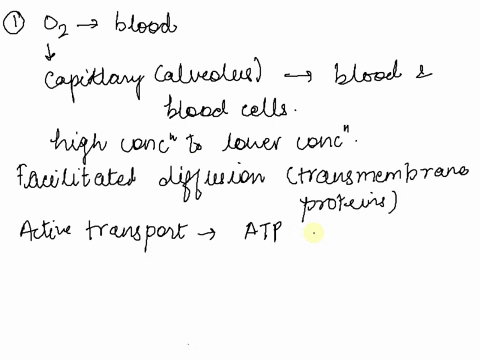 ① O₂ → blood
↓
Capillary (alveolus) → blood &
blood cells.
high concⁿ to lower concⁿ.
Facilitated diffusion (transmembrane
proteins)
Active transport → ATP